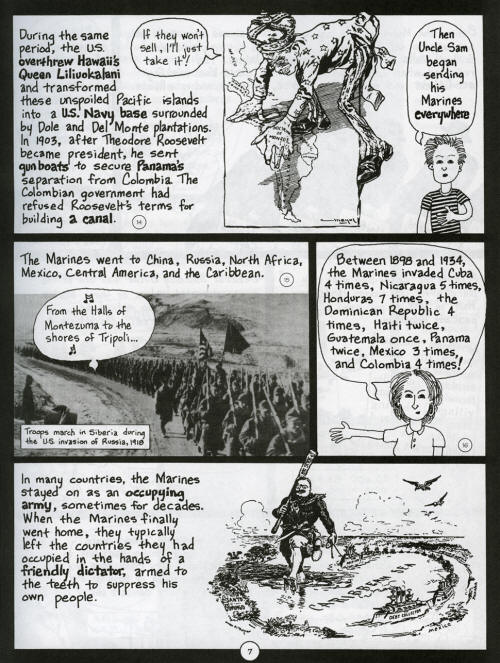 During the same
period, the U.S.
overthrew Hawaii's
Queen Liliuokalani
and transformed
these unspoiled Pacific islands
into a U.S. Navy base surrounded
by Dole and Del Monte plantations.
In 1903, after Theodore Roosevelt
became president, he sent
gunboats to secure Panama's
separation from Colombia. The
Colombian government had
refused Roosevelt's terms for
building a canal.
14
If they won't
sell, I'll just
take it!
Then
Uncle Sam
began
sending
his
Marines
everywhere
The Marines went to China, Russia, North Africa,
Mexico, Central America, and the Caribbean.
15
From the Halls of
Montezuma to the
shores of Tripoli...
Troops march in Siberia during
the U.S. invasion of Russia, 1918
Between 1898 and 1934,
the Marines invaded Cuba
4 times, Nicaragua 5 times,
Honduras 7 times, the
Dominican Republic 4
times, Haiti twice,
Guatemala once, Panama
twice, Mexico 3 times,
and Colombia 4 times!
16
In many countries, the Marines
stayed on as an occupying
army, sometimes for decades.
When the Marines finally
went home, they typically
left the countries they had
occupied in the hands of a
friendly dictator, armed to
the teeth to suppress his
own people.
DEBT COLLECTOR
MEXICO
7